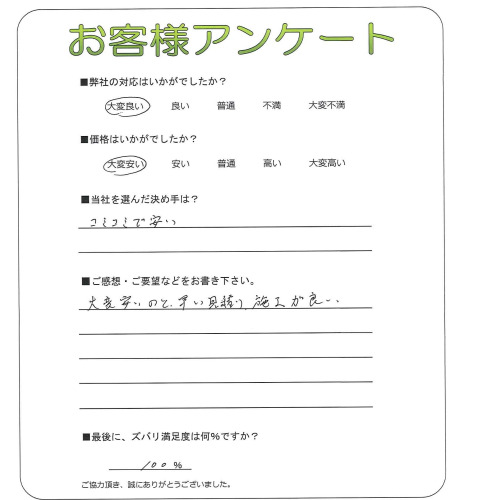 お客様アンケート
■弊社の対応はいかがでしたか？
大変良い 良い 普通 不満 大変不満
■価格はいかがでしたか？
大変安い 安い 普通 高い 大変高い
■当社を選んだ決め手は？
コミコミで安い
■ご感想・ご要望などをお書き下さい。
大変安いのと、早い見積り、施工が良い。
■最後に、ズバリ満足度は何%ですか？
100 %
ご協力頂き、誠にありがとうございました。